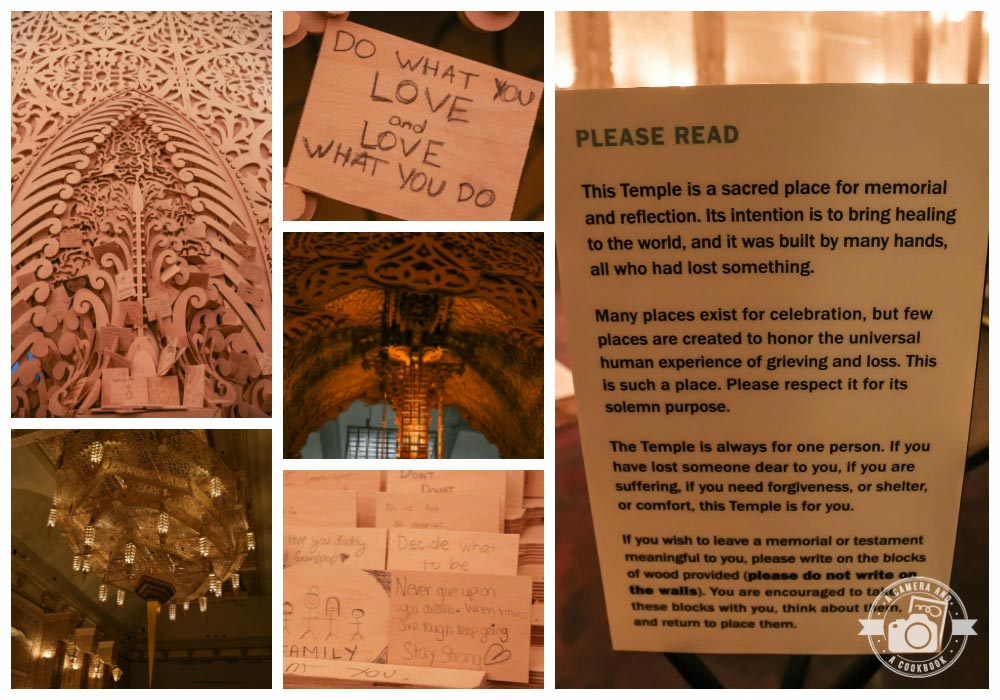 DO WHAT YOU
LOVE
and
LOVE
WHAT YOU DO
DON'T
DOUBT
love you daddy
Grandpop
Decide what
to be
Never give up on
you dreams. When times
are tough keep going
Stay Strong
FAMILY
YOU
PLEASE READ
This Temple is a sacred place for memorial
and reflection. Its intention is to bring healing
to the world, and it was built by many hands,
all who had lost something.
Many places exist for celebration, but few
places are created to honor the universal
human experience of grieving and loss. This
is such a place. Please respect it for its
solemn purpose.
The Temple is always for one person. If you
have lost someone dear to you, if you are
suffering, if you need forgiveness, or shelter,
or comfort, this Temple is for you.
If you wish to leave a memorial or testament
meaningful to you, please write on the blocks
of wood provided (please do not write on
the walls). You are encouraged to
these blocks with you, think about
and return to place them.
A CAMERA AND
A COOKBOOK